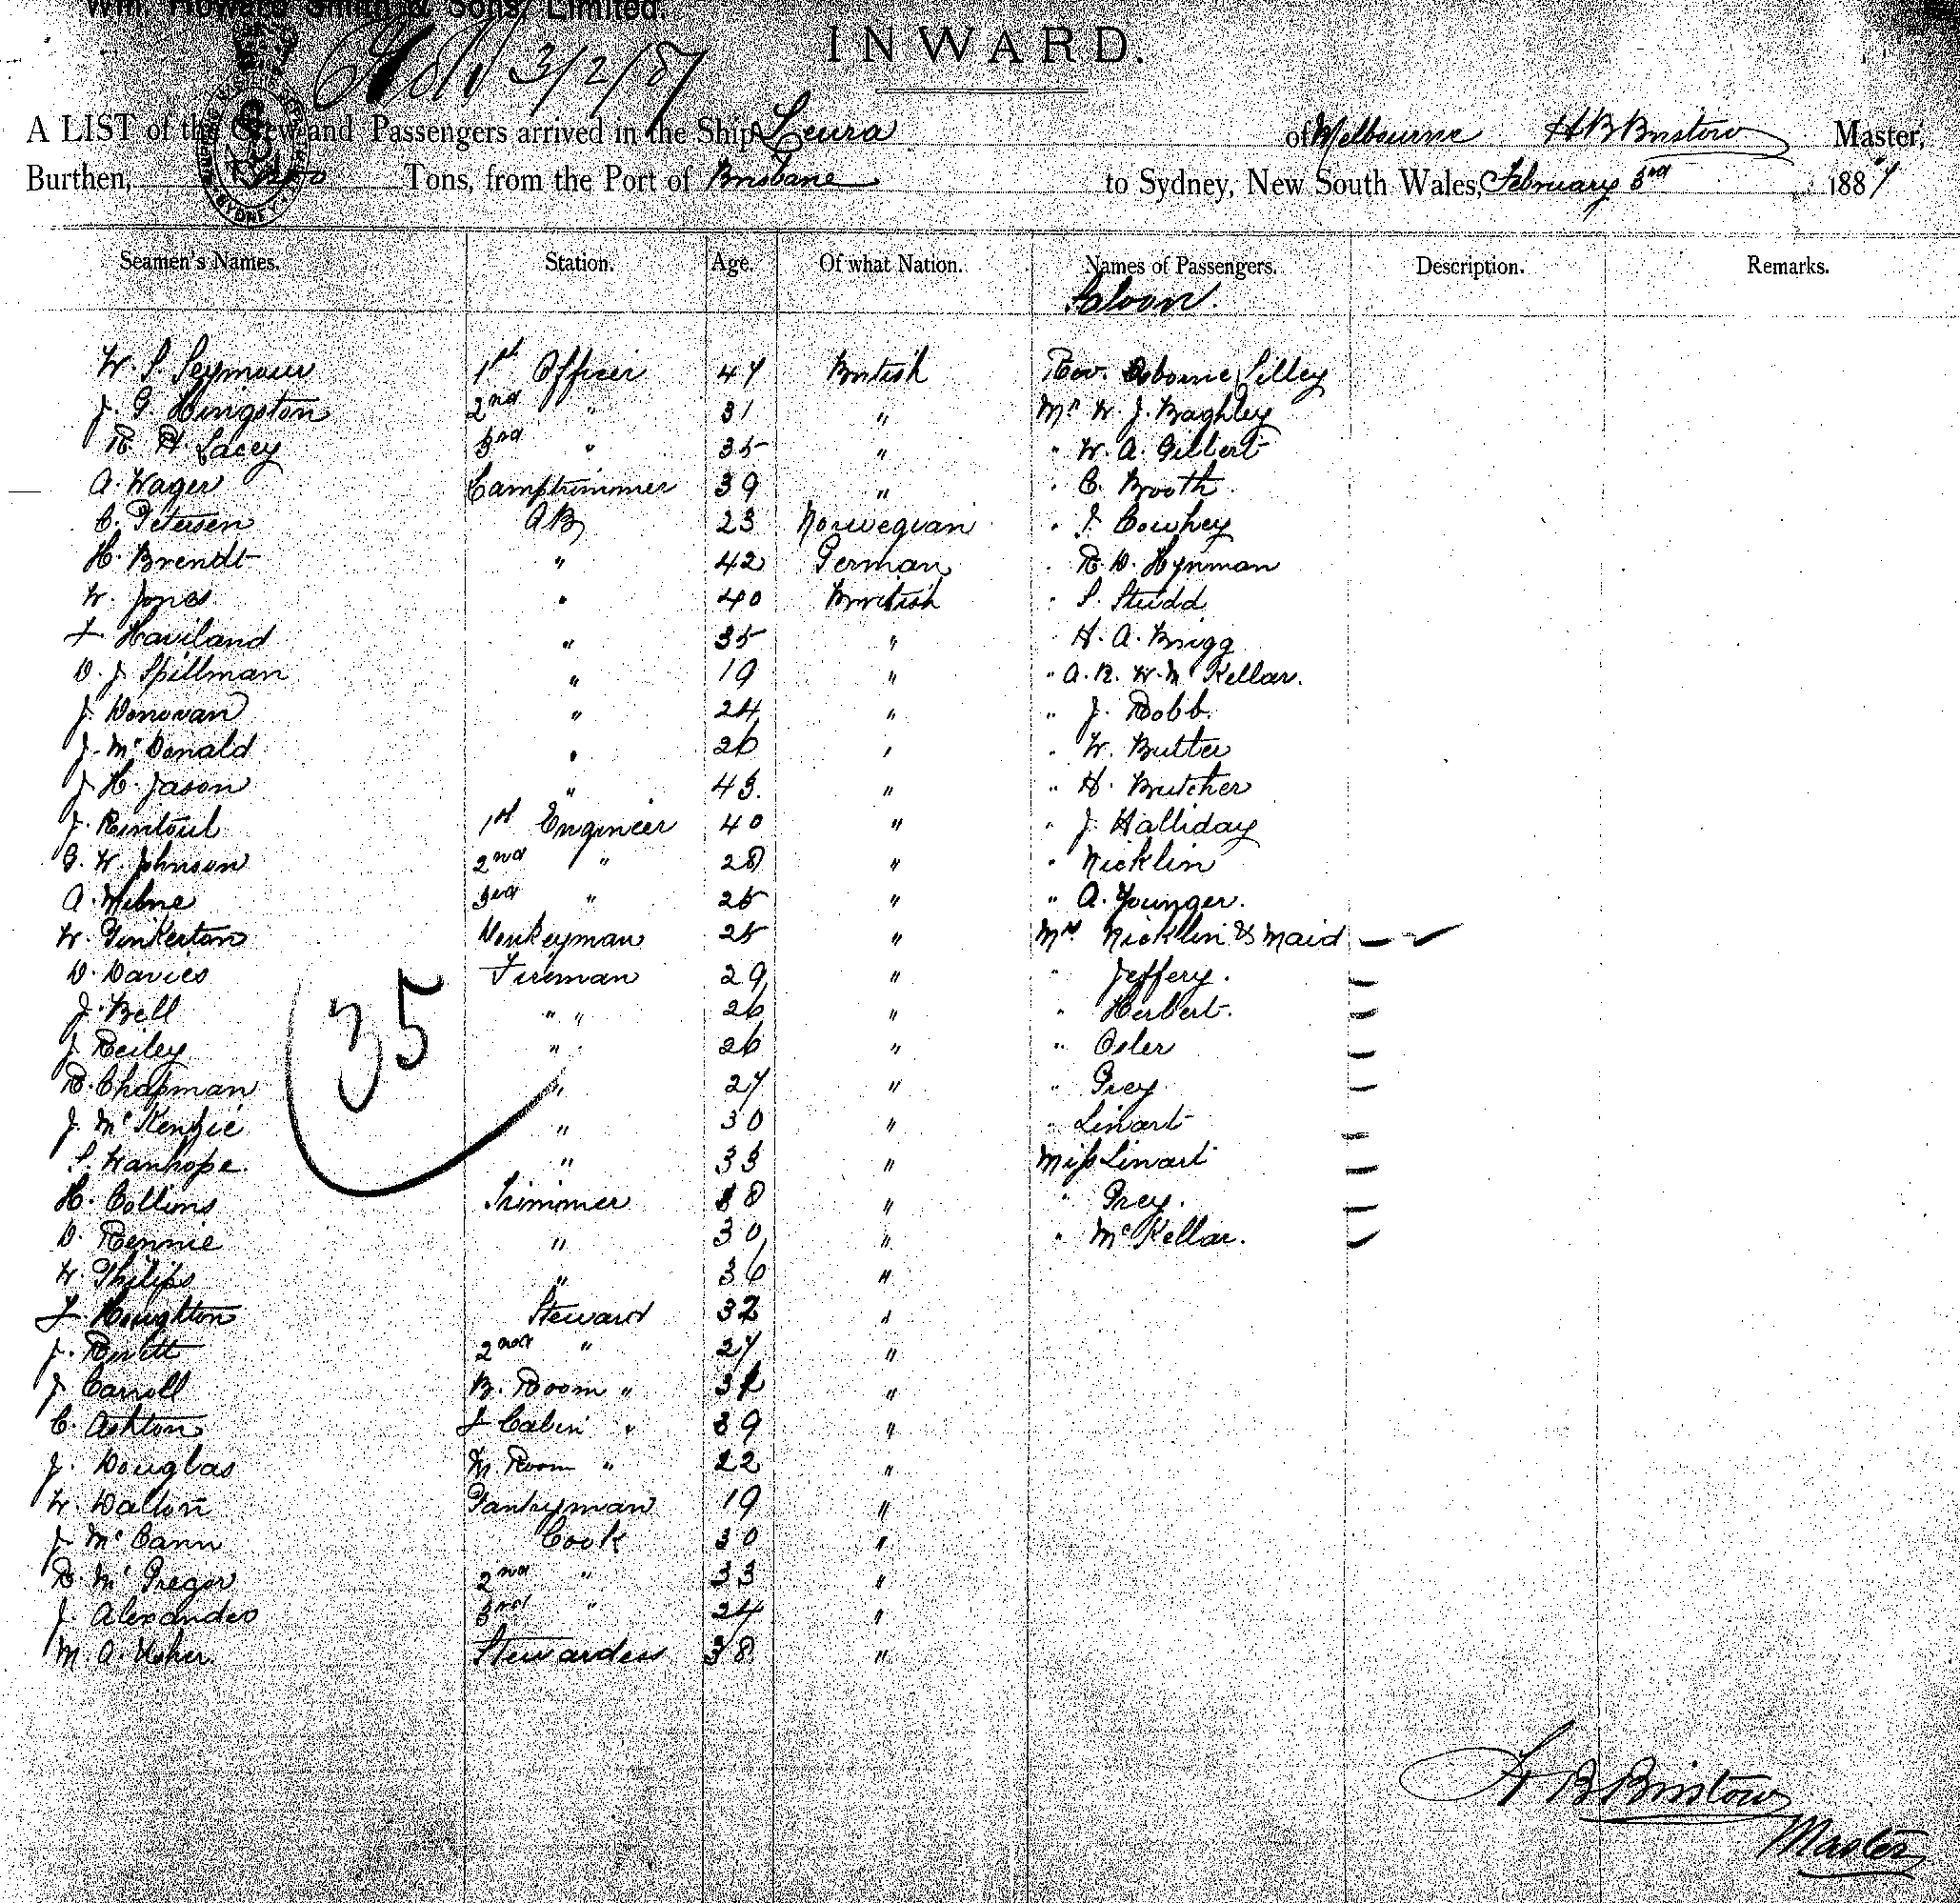 Wm. Howard Smith & Sons, Limited.
3/2/87
INWARD.
A LIST of the Crew and Passengers arrived in the Ship Leura of Melbourne H B Bristow Master,
Burthen, Tons, from the Port of Brisbane to Sydney, New South Wales, February 3rd 1887
Seamen's Names. Station. Age. Of what Nation. Names of Passengers. Description. Remarks.
Saloon.
W. S. Seymour 1st Officer 47 British Rev. Osborne Lilley
J. G. Kingston 2nd " 31 " Mr W. J. Baghley
R. H. Lacey 3rd " 35 " " W. A. Gilbert
A. Wager Lamptrimmer 39 " " C. Booth
C. Petersen AB 23 Norwegian " J. Cowhey
H. Brendt " 42 German " R. D. Hynman
W. Jones " 40 British " S. Studd
F. Haviland " 35 " " H. A. Brigg
D. J. Spillman " 19 " " A. R. W. Mc Kellar.
J. Donovan " 24 " " J. Robb.
J. Mc Donald " 26 " " W. Butter
J. H. Jason " 43. " " H. Butcher
J. Rintoul 1st Engineer 40 " " J. Halliday
G. W. Johnson 2nd " 28 " " Nicklin
A. Milne 3rd " 25 " " A. Younger.
W. Pinkerton Donkeyman 25 " Mrs Nicklin & Maid
D. Davies Fireman 29 " " Jeffery.
J. Bell " " 26 " " Herbert.
J. Reiley " 26 " " Osler
R. Chapman " 27 " " Grey.
J. Mc Kenzie " 30 " " Linart
S. Wanhope. " 33 " Miss Linart
H. Collins Trimmer 38 " " Grey.
D. Rennie " 30 " " Mc Kellar.
W. Philips " 36 "
F. Houghton Steward 32 "
J. Revett 2nd " 27 "
J. Carroll B. Room " "
C. Ashton F Cabin " 39 "
J. Douglas M. Room " 22 "
W. Dalton Pantryman 19 "
J. Mc Cann Cook 30 "
R. Mc Gregor 2nd " 33 "
J. Alexander 3rd " 24 "
M. A. Usher. Stewardess 38 "
35
H B Bristow
Master